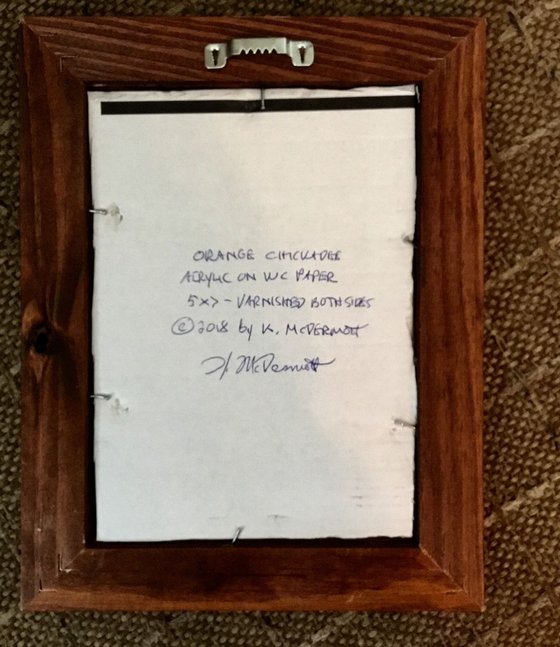 ORANGE CHICKADEE
ACRYLIC ON WC PAPER
5x7 - VARNISHED BOTH SIDES
© 2018 by K. McDERMOTT
K McDermott